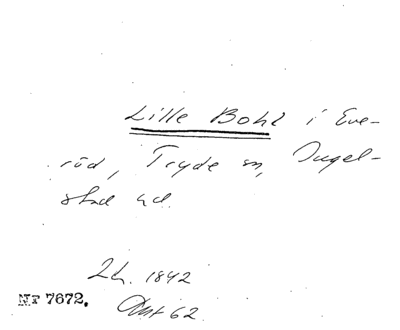 Lille Bohl i Eve-
röd, Tryde sn, Ingel-
stad hd.
1842
Nr 7672. 62